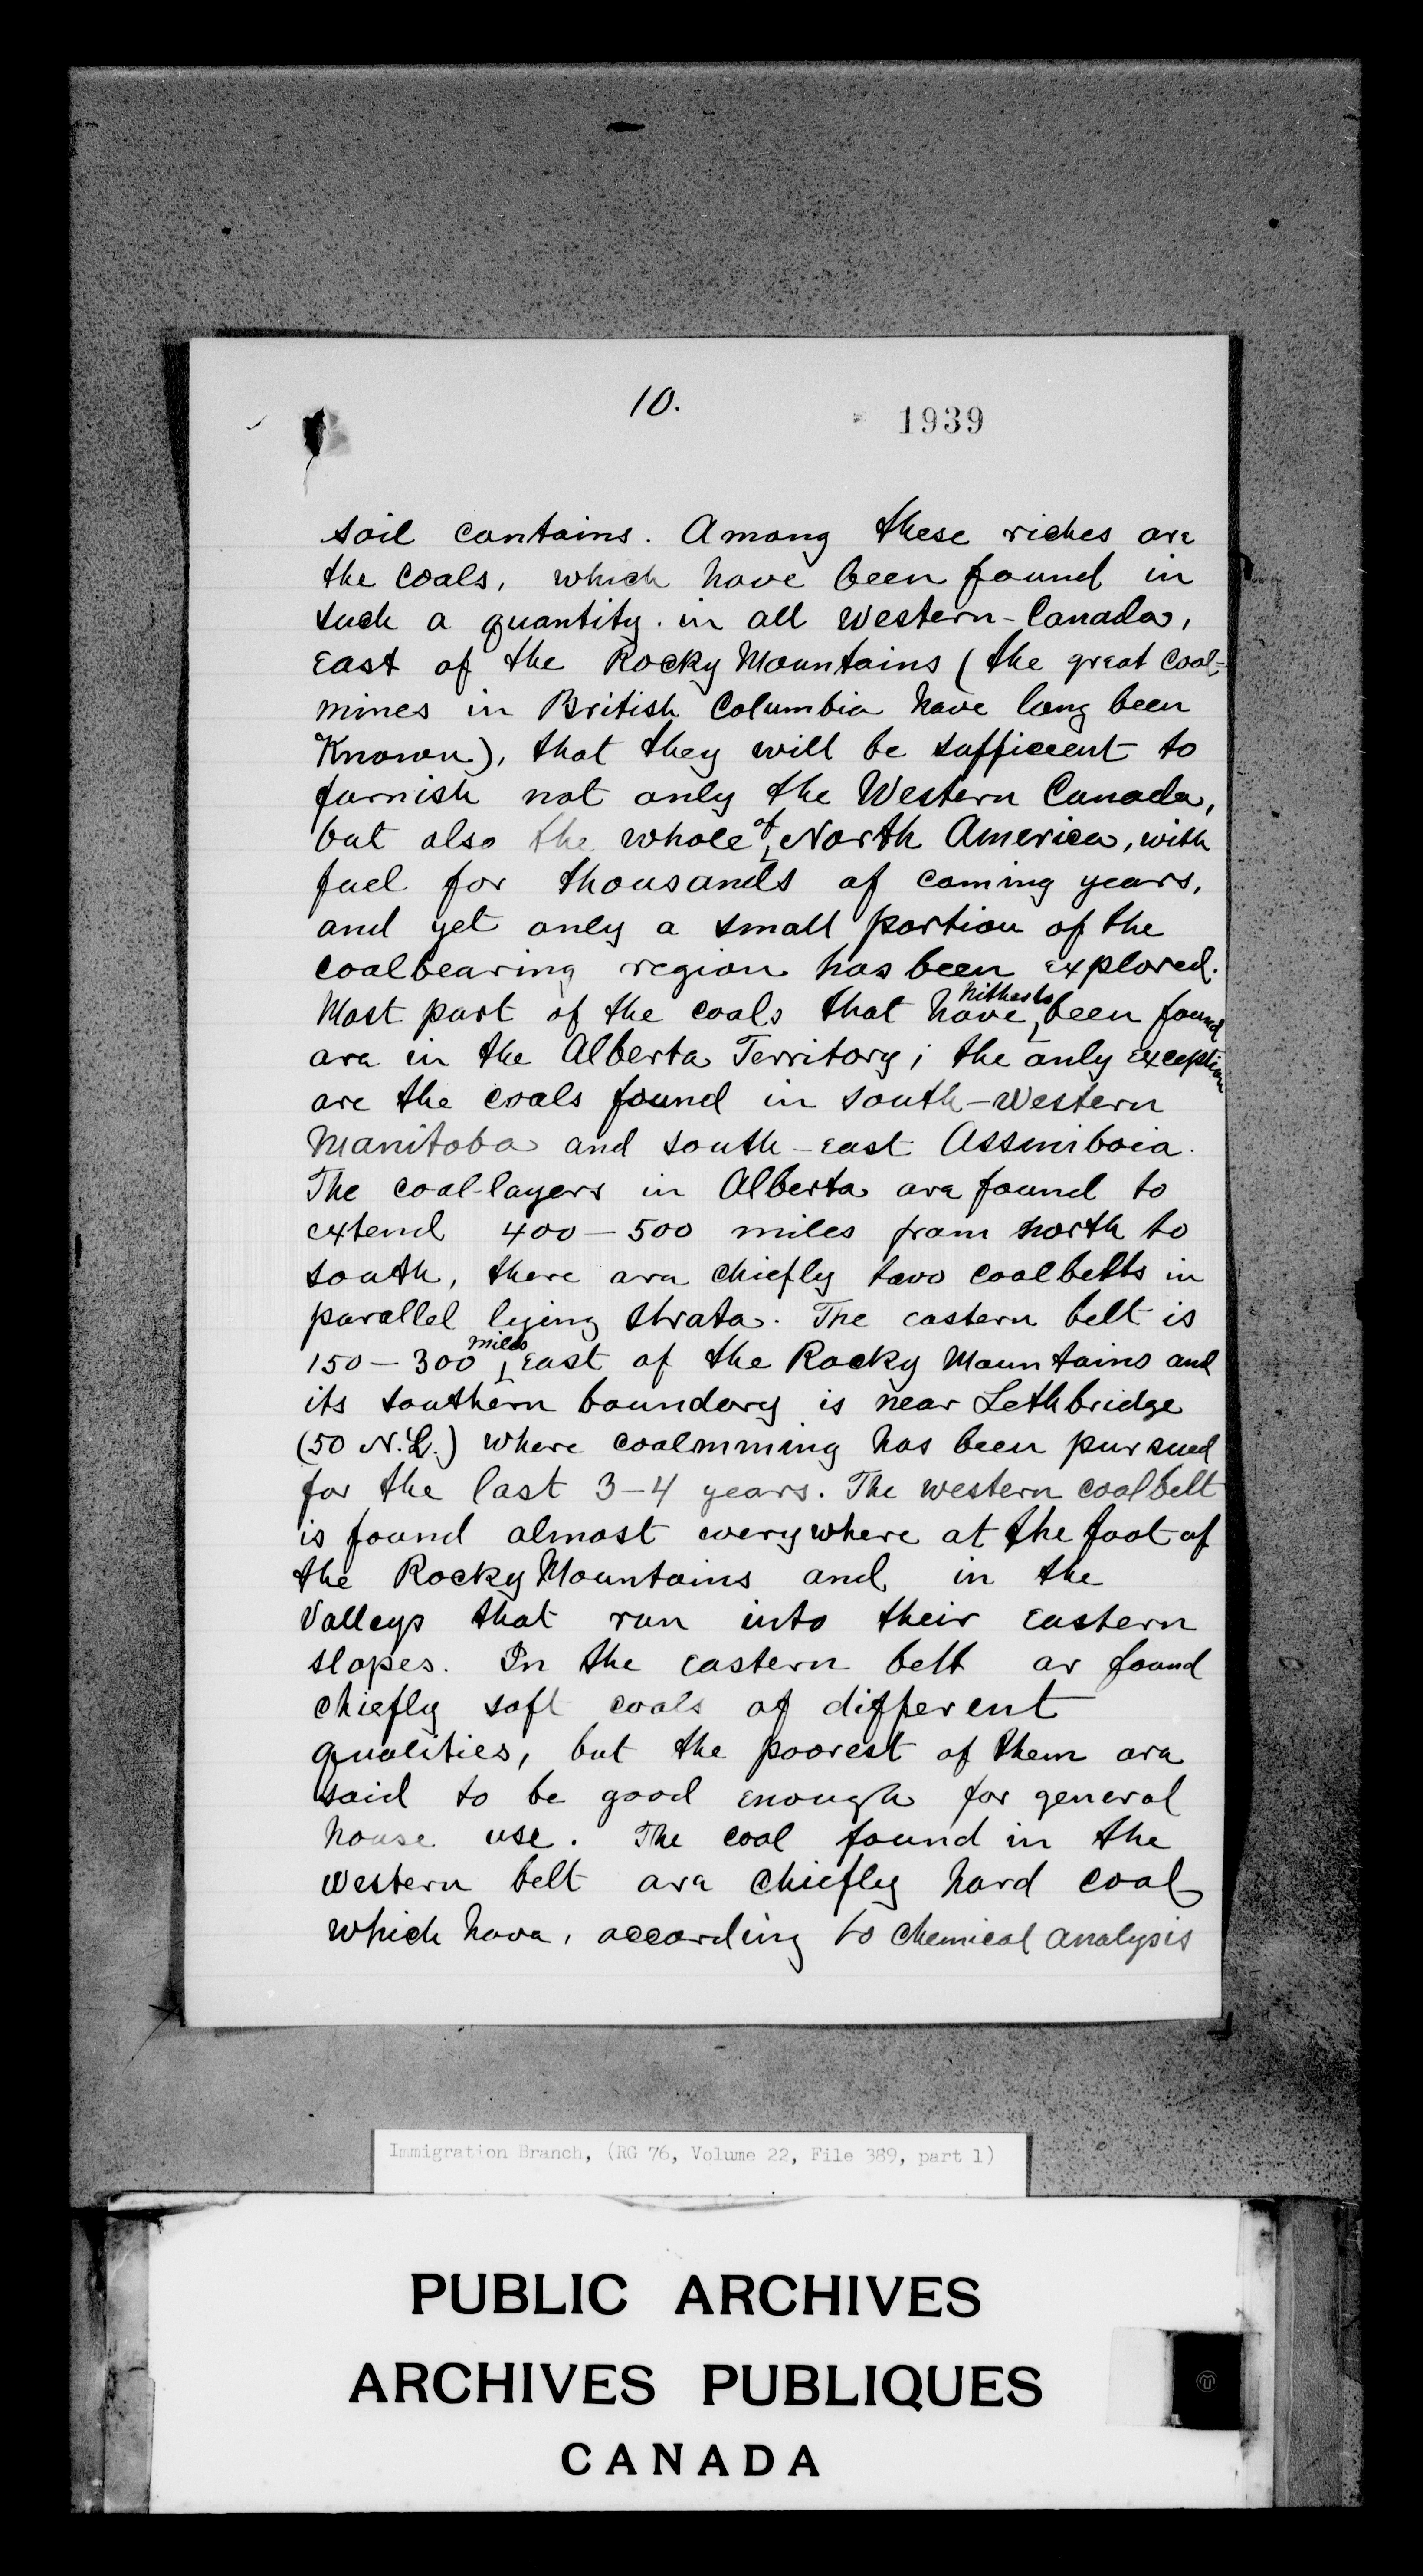 10.
1939
soil contains. Among these riches are
the coals, which have been found in
such a quantity in all Western-Canada,
East of the Rocky Mountains (the great coal-
mines in British Columbia have long been
Known), that they will be sufficient to
furnish not only the Western Canada,
but also the whole of North America, with
fuel for thousands of coming years,
and yet only a small portion of the
coalbearing region has been explored.
Most part of the coals that have hitherto been found
are in the Alberta Territory; the only exception
are the coals found in south-Western
Manitoba and south-east Assiniboia.
The coal-layers in Alberta are found to
extend 400-500 miles from north to
south, there are chiefly two coalbelts in
parallel lying strata. The eastern belt is
150-300 miles East of the Rocky Mountains and
its southern boundery is near Lethbridge
(50 N.L.) where coalmining has been pursued
for the last 3-4 years. The western coalbelt
is found almost everywhere at the foot of
the Rocky Mountains and in the
Valleys that run into their eastern
slopes. In the eastern belt ar found
chiefly soft coals of different
qualities, but the poorest of them are
said to be good enough for general
house use. The coal found in the
western belt are chiefly hard coal
which have, according to chemical analysis
Immigration Branch, (RG 76, Volume 22, File 389, part 1)
PUBLIC ARCHIVES
ARCHIVES PUBLIQUES
CANADA